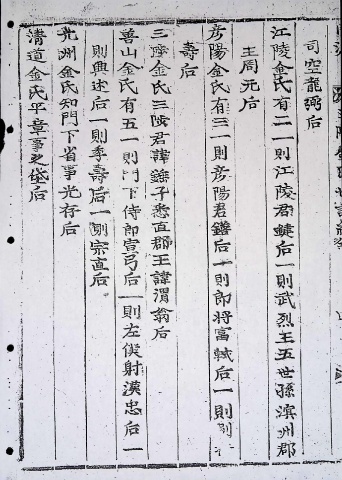 司空龍弼后
江陵金氏有二一則江陵君鍵后一則武烈王五世孫溟州郡
王周元后
彦陽金氏有三一則彦陽君鐥后一則郎將富軾后一則
壽后
三陟金氏三陟君諱子悉直郡王諱渭翁后
善山金氏有五一則門下侍郎宣弓后一則左僕射漢忠后一
則興述后一則季壽后一則宗直后
光州金氏知門下省事光存后
清道金氏平章事之岱后